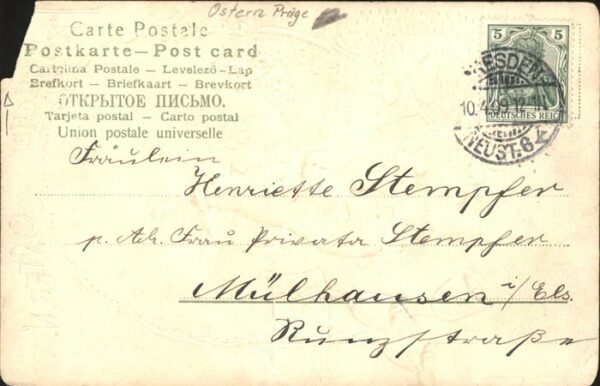 Ostern Präge
Carte Postale
Postkarte—Post card
Cartolina Postale – Levelező-Lap
Brefkort – Briefkaart – Brevkort
ОТКРЫТОЕ ПИСЬМО.
Tarjeta postal – Carto postal
Union postale universelle
5 5
DEUTSCHES REICH
DRESDEN
10.4.09. 12-1N
NEUST. 6
Fräulein
Henriette Stempfer
p. Adr. Frau Privata Stempfer
Mülhausen i/Els.
Runzstraße